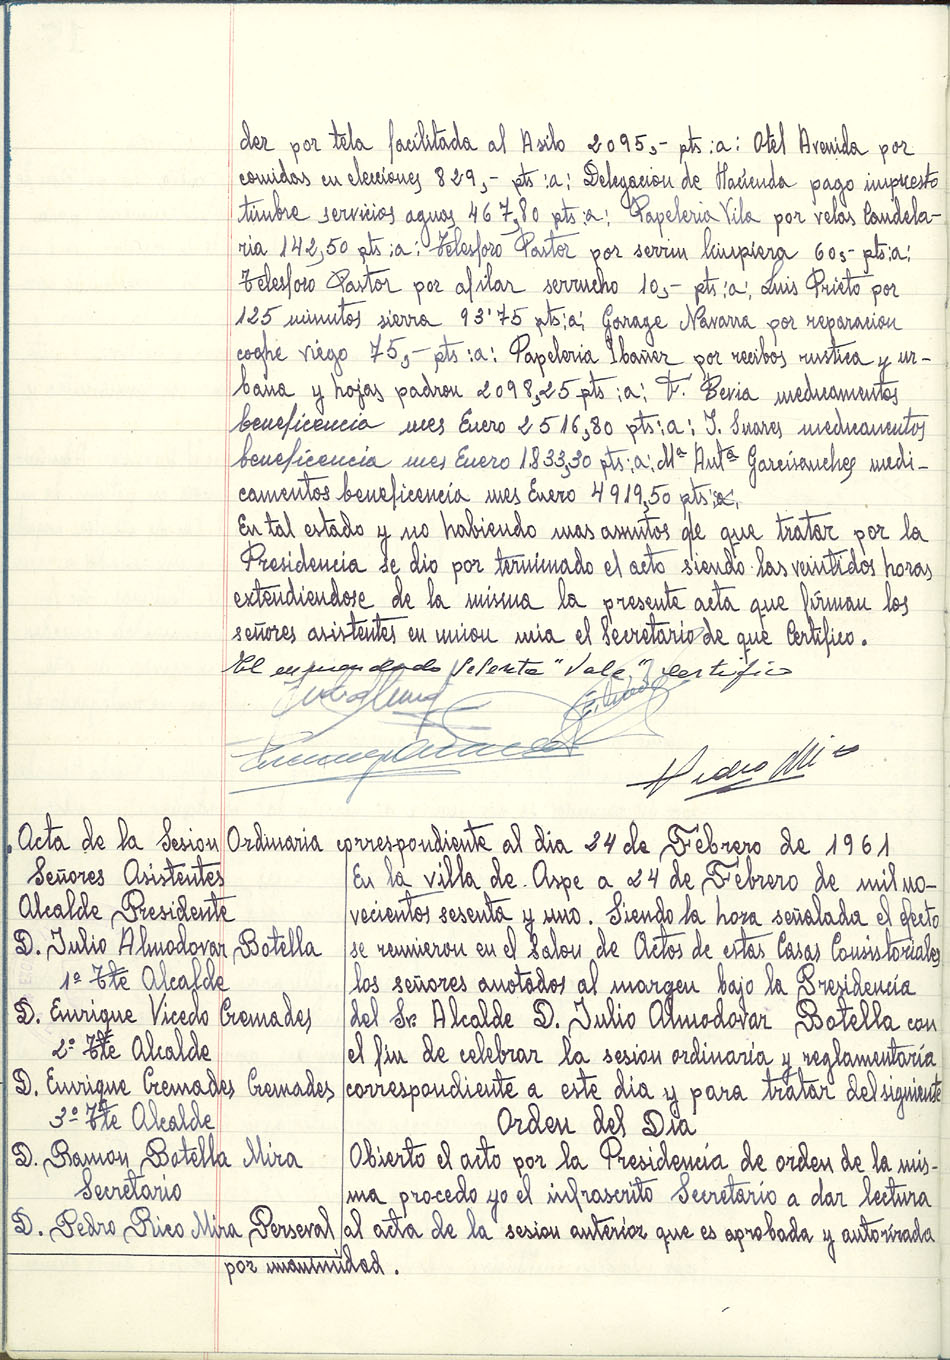 der por tela facilitada al Asilo 2095,- pts :a: Otel Avenida por
comidas en elecciones 829,- pts :a: Delegacion de Hacienda pago impuesto
timbre servicios aguas 467,80 pts :a: Papeleria Vila por velas Candela-
ria 142,50 pts :a: Telesforo Pastor por serrin limpieza 60,- pts :a:
Telesforo Pastor por afilar serrucho 10,- pts :a: Luis Prieto por
125 minutos sierra 93'75 pts :a: Garage Navarra por reparacion
coche riego 75,- pts :a: Papeleria Ibañez por recibos rustica y ur-
bana y hojas padron 2098,25 pts :a: F. Bevia medicamentos
beneficencia mes Enero 2516,80 pts :a: J. Suares medicamentos
beneficencia mes Enero 1.833,30 pts :a: Mª Antª Garcisanchez medi-
camentos beneficencia mes Enero 4919,50 pts
En tal estado y no habiendo mas asuntos de que tratar por la
Presidencia se dio por terminado el acto siendo las veintidos horas
extendiendose de la misma la presente acta que firman los
señores asistentes en union mia el Secretario de que Certifico.
El enmendado Sesenta "Vale" certifico
Pedro Rico
Acta de la Sesion Ordinaria correspondiente al dia 24 de Febrero de 1961
Señores Asistentes
Alcalde Presidente
D. Julio Almodovar Botella
1º Tte Alcalde
D. Enrique Vicedo Cremades
2º Tte Alcalde
D. Enrique Cremades Cremades
3º Tte Alcalde
D. Ramon Botella Mira
Secretario
D. Pedro Rico Mira Perseval
En la villa de Aspe a 24 de Febrero de mil no-
vecientos sesenta y uno. Siendo la hora señalada el efecto
se reunieron en el Salon de Actos de estas Casas Consistoriales
los señores anotados al margen bajo la Presidencia
del Sr. Alcalde D. Julio Almodovar Botella con
el fin de celebrar la sesion ordinaria y reglamentaria
correspondiente a este dia y para tratar del siguiente
Orden del Dia
Abierto el acto por la Presidencia de orden de la mis-
ma procedo yo el infrascrito Secretario a dar lectura
al acta de la sesion anterior que es aprobada y autorizada
por unanimidad.